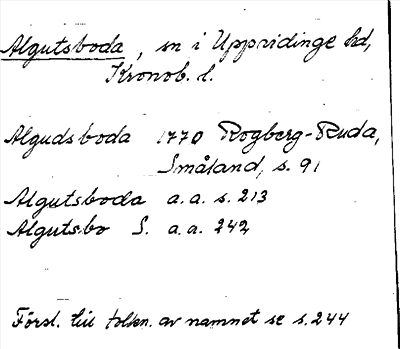 Algutsboda, sn i Uppvidinge hd,
Kronob. l.
Algudsboda 1770 Rogberg-Ruda,
Småland, s. 91
Algutsboda a.a. s. 213
Algutsbo S. a.a. 242
Försl. till tolkn. av namnet se s. 244